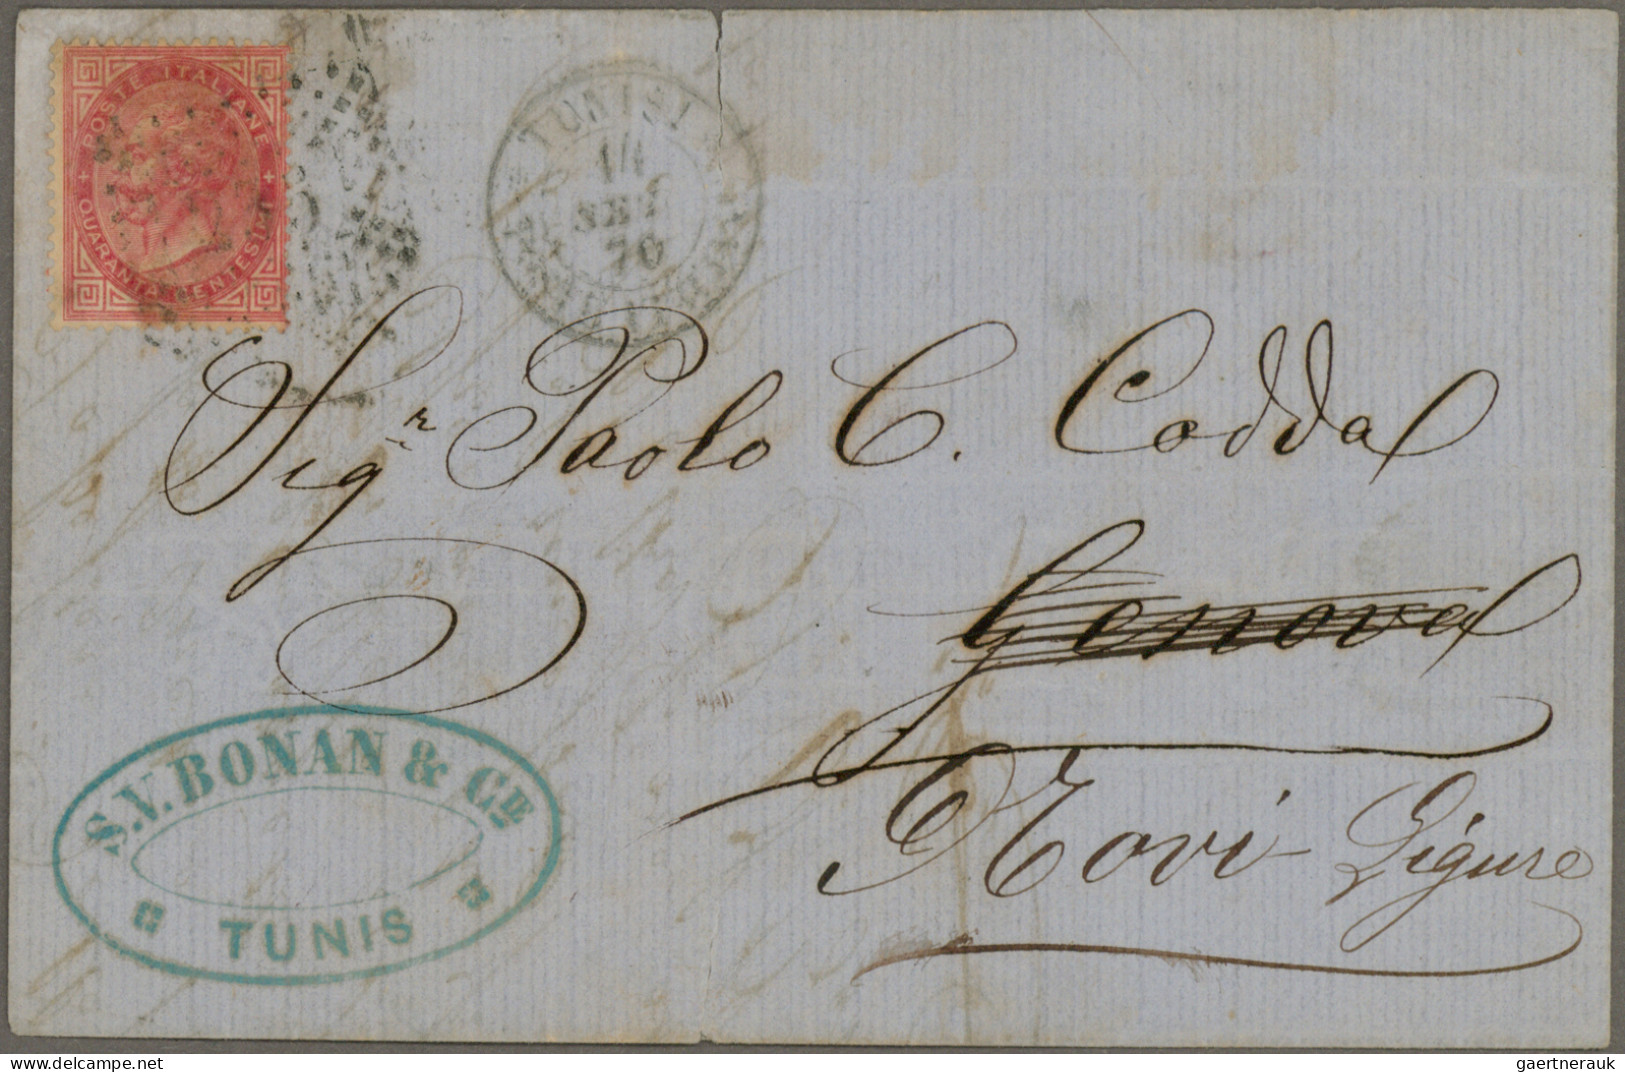 POSTE ITALIANE
QUARANTA CENTESIMI
TUNISI
SET
70
Sigr Paolo C. Codda
Genova
Novi Ligure
S.V. BONAN & CIE
TUNIS
gaertnerauk